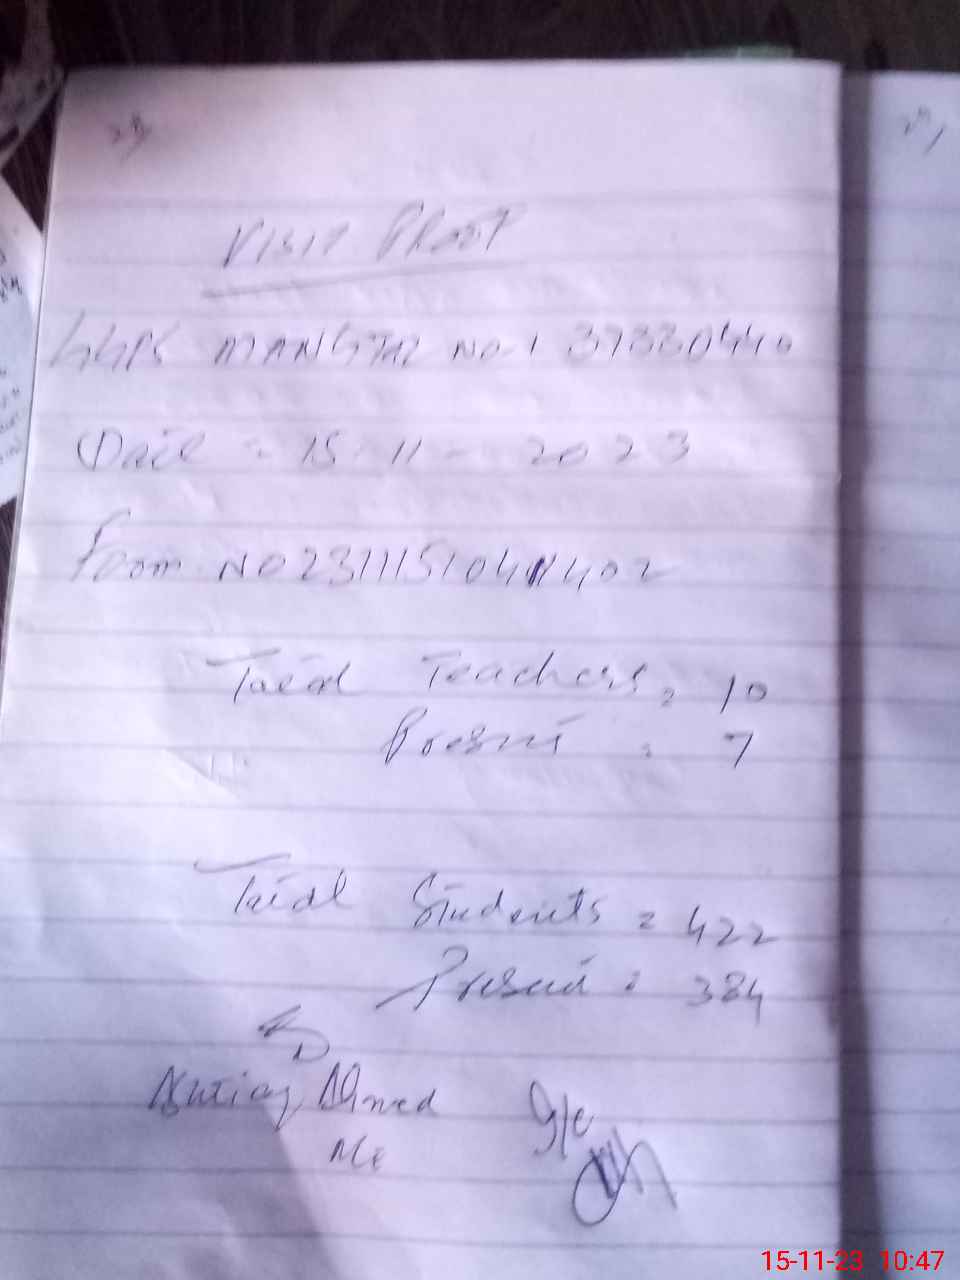 VISIT PROOF
GGPS MANGTAL NO-1 37330440
Date = 15-11-2023
Form NO 23111510411402
Total Teachers = 10
Present = 7
Total Students = 422
Present = 384
Ahmed
I/C
15-11-23 10:47